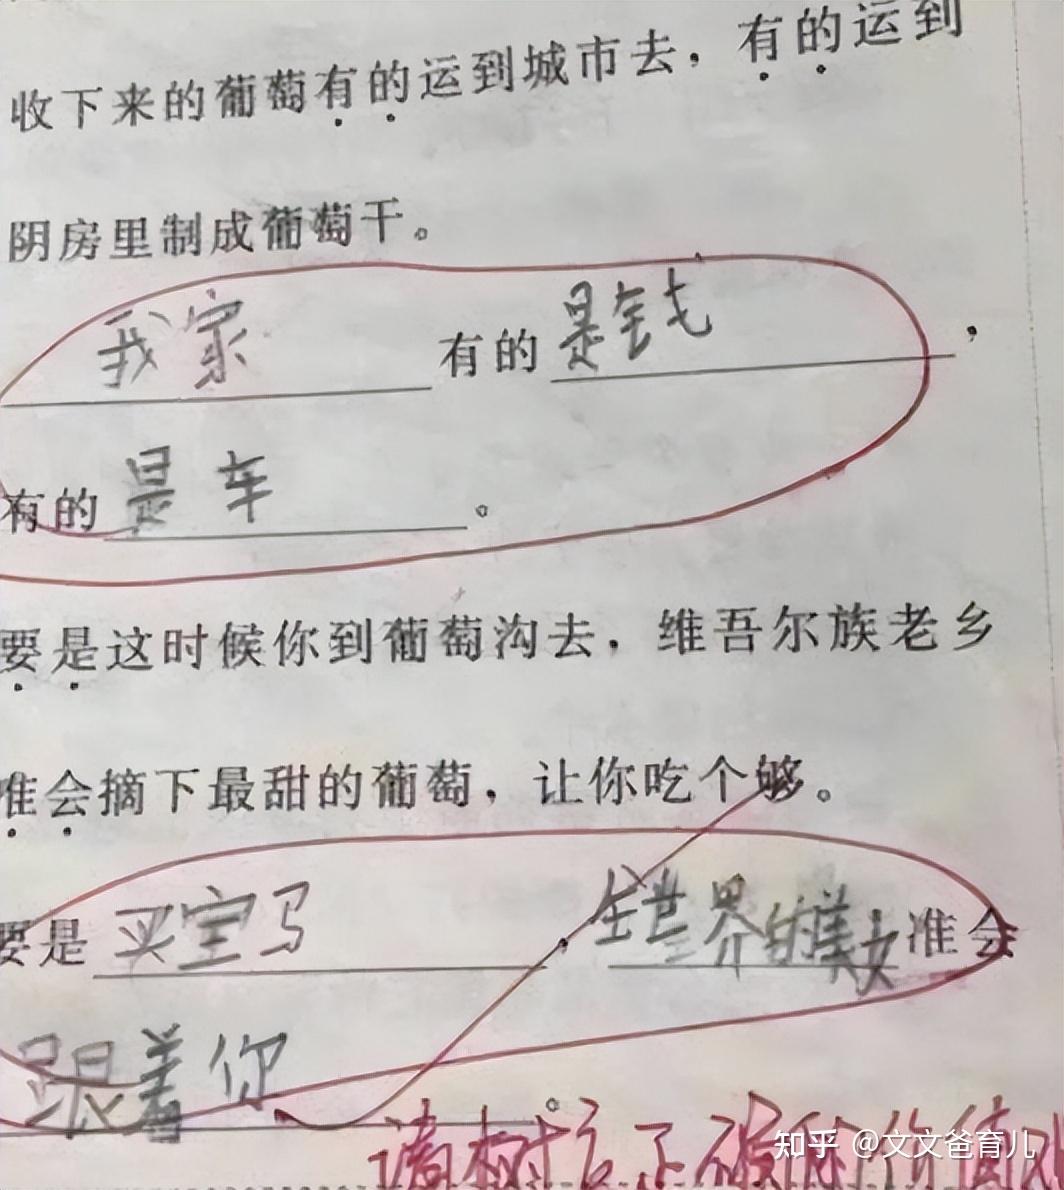 收下来的葡萄有的运到城市去，有的运到
阴房里制成葡萄干。
我家有的是钱，
有的是车。
要是这时候你到葡萄沟去，维吾尔族老乡
准会摘下最甜的葡萄，让你吃个够。
要是买宝马，全世界的美女准会
跟着你。
请树立正确的价值观
知乎 @文文爸育儿